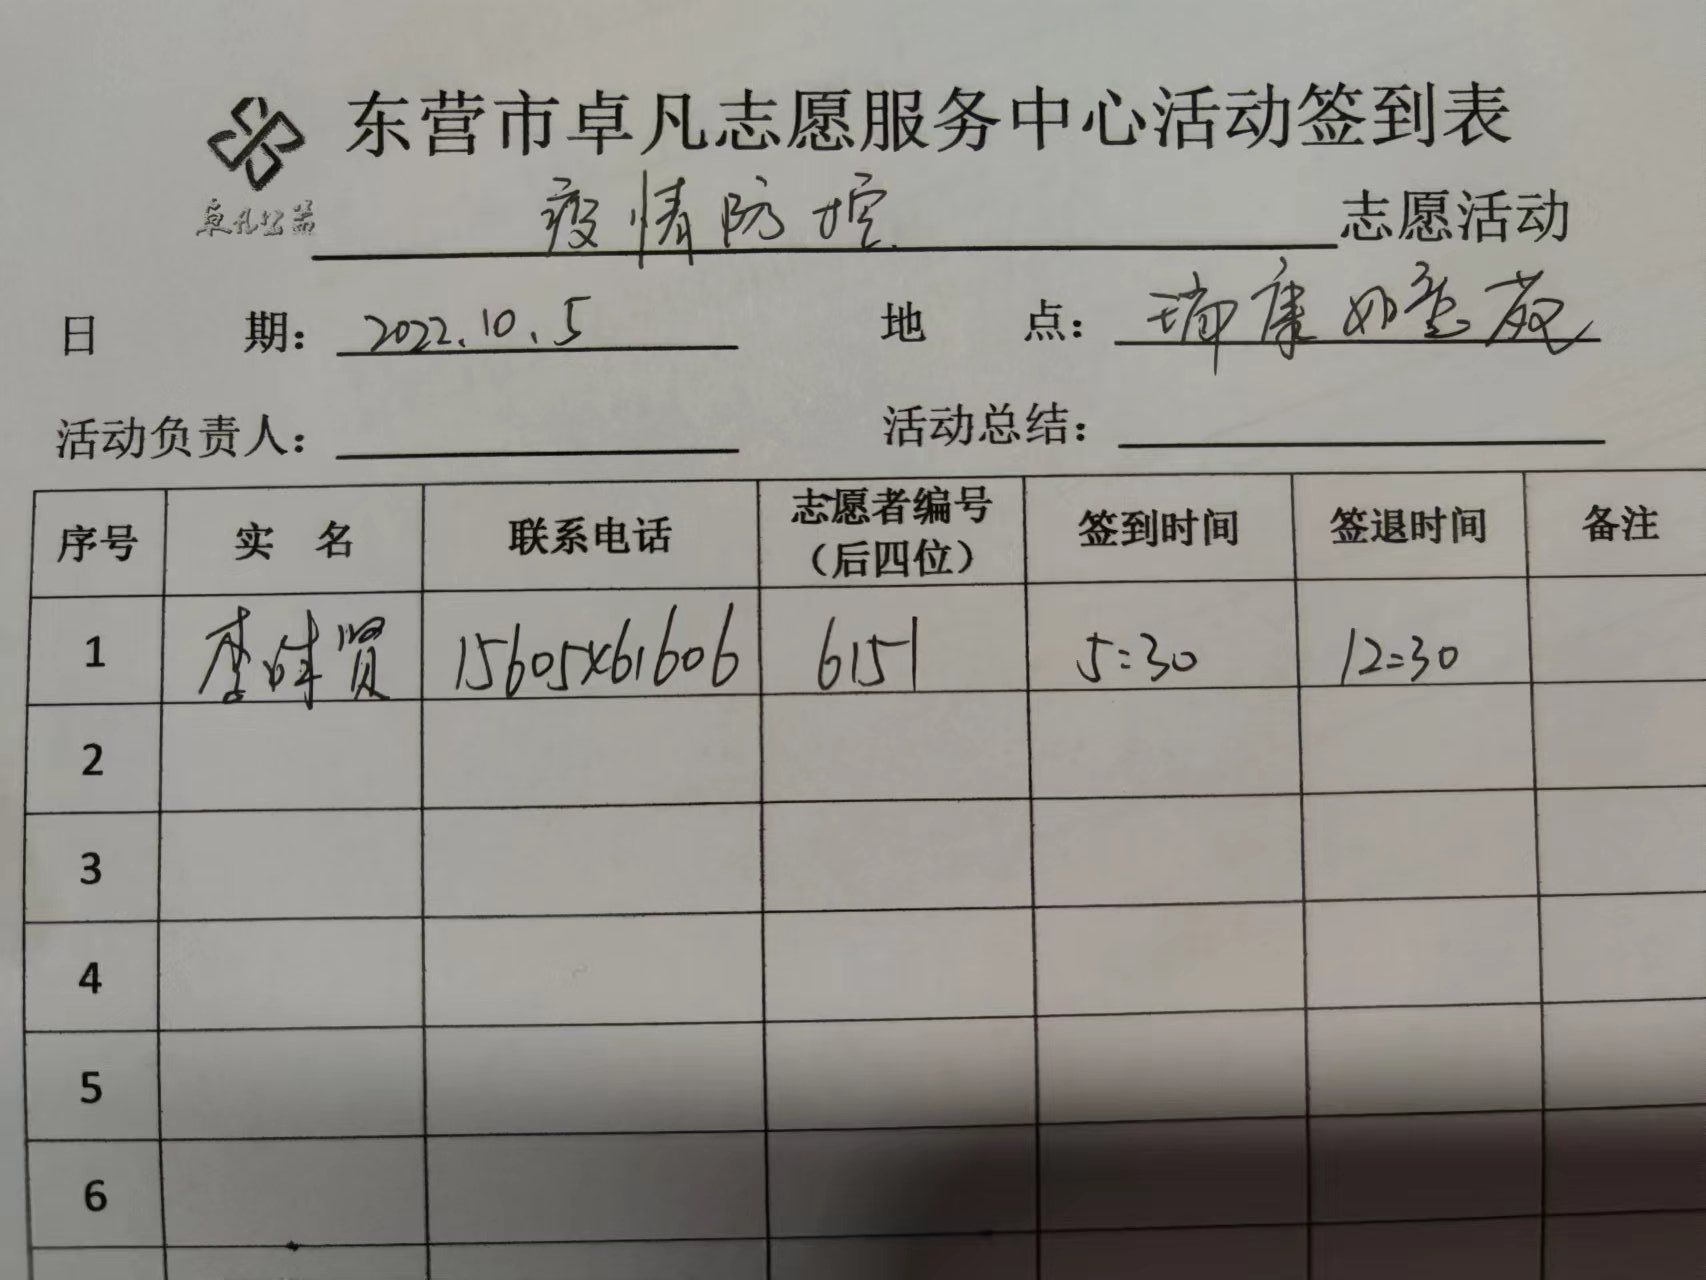 东营市卓凡志愿服务中心活动签到表
卓凡公益
疫情防控 志愿活动
日期: 2022.10.5 地点: 瑞康
活动负责人: 活动总结:
序号 实名 联系电话 志愿者编号(后四位) 签到时间 签退时间 备注
1 李 贤 15605461606 6151 5:30 12:30
2
3
4
5
6